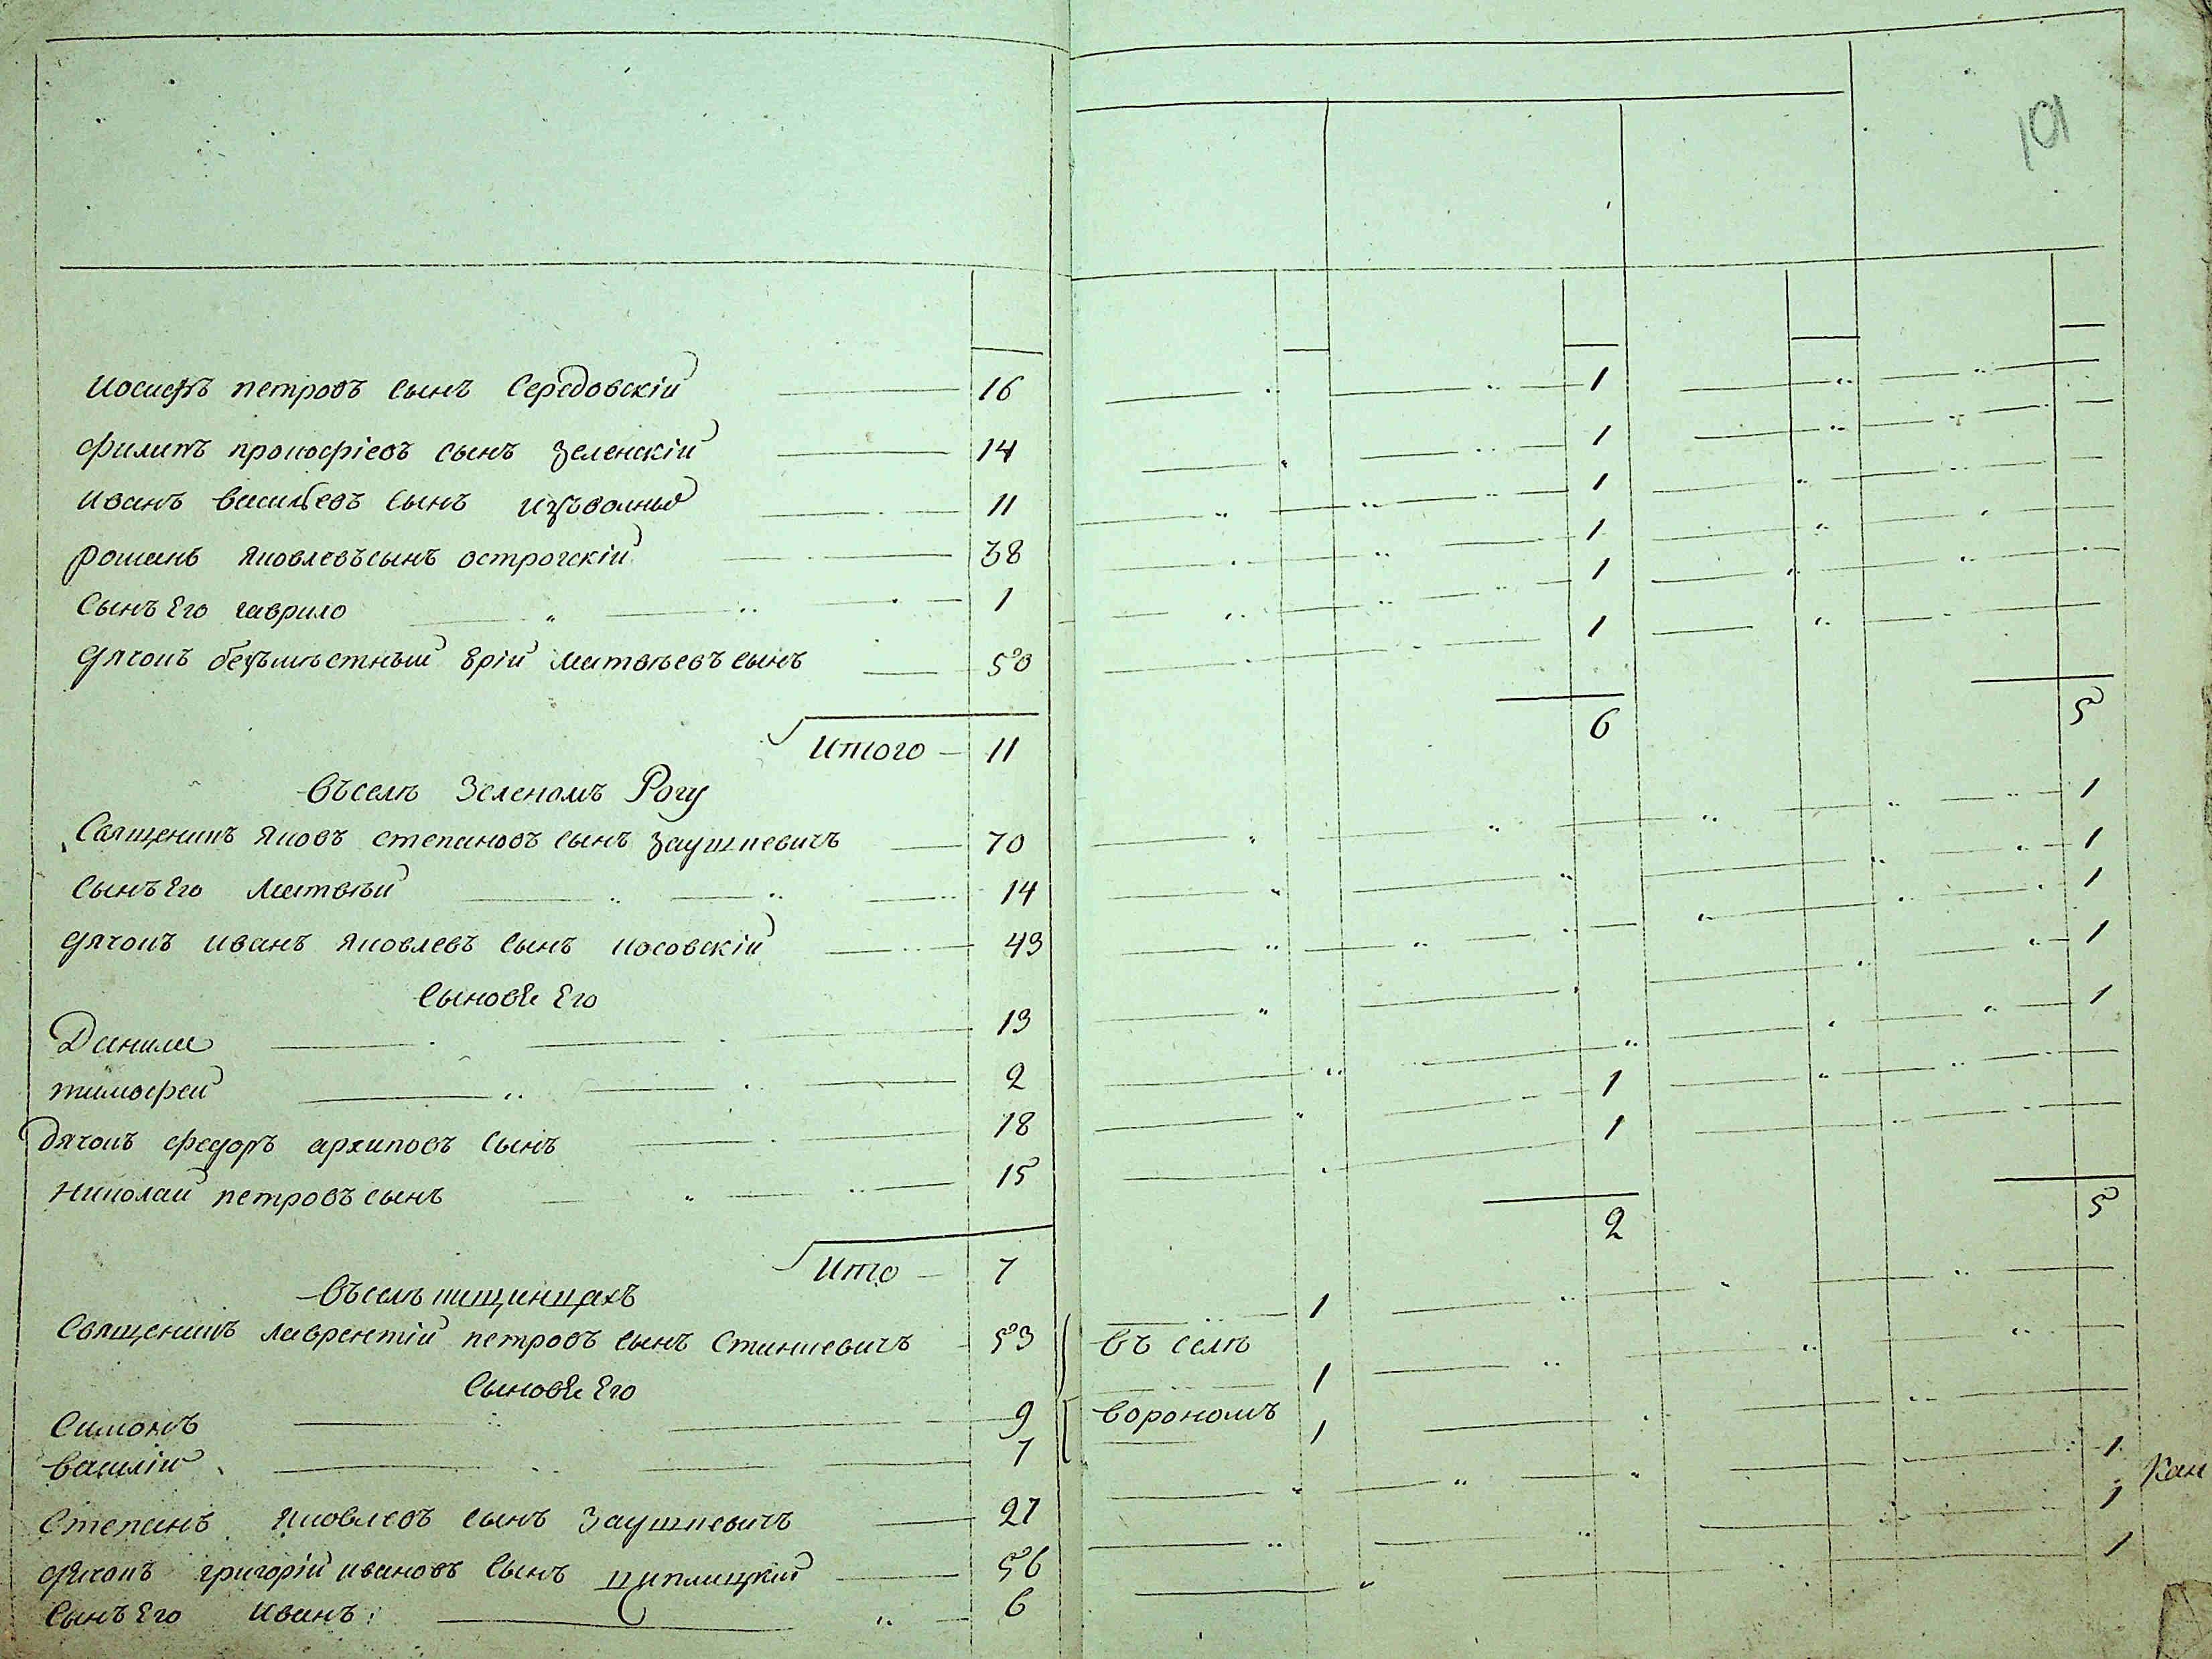 101
Иосифъ петровъ сынъ Середовскій 16 1
Филипъ прокофіевъ сынъ Зеленскій 14 1
Иванъ васильевъ сынъ 11 1
Романъ яковлевъ сынъ острогскій 38 1
Сынъ Его гаврило 1 1
Дячокъ безъмѣстный Юрій матвѣевъ сынъ 50 1
6 5
Итого 11
Въ селѣ Зеленомъ Рогу
Священикъ яковъ степановъ сынъ Заушкевичъ 70 1
Сынъ Его матвѣй 14 1
Дячокъ иванъ яковлевъ сынъ косовскій 43 1
Сыновя Его
Данило 13 1
тимофей 2 1
Дячокъ федоръ архиповъ сынъ 18 1
николай петровъ сынъ 15 1
2 5
Ито 7
Въ селѣ
Священикъ лаврентій петровъ сынъ Станкевичъ 53 въ селѣ 1
Сыновя Его
Симонъ 9 ворономъ 1
василій 7 1
Степанъ яковлевъ сынъ Заушкевичъ 27 1
Дячокъ григорій ивановъ сынъ 56 1
Сынъ Его иванъ: 6 1
Кан